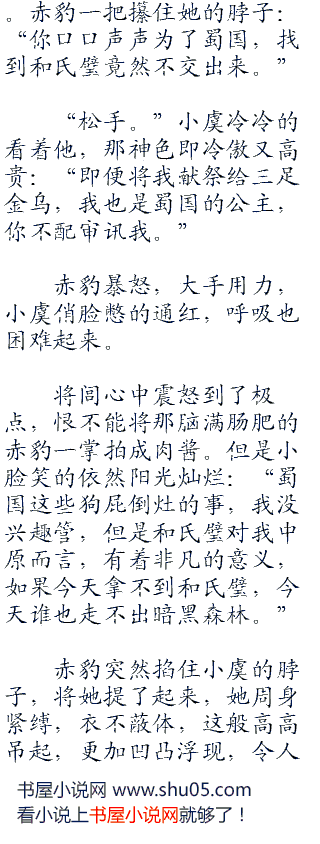 。赤豹一把攥住她的脖子：
“你口口声声为了蜀国，找
到和氏璧竟然不交出来。”
“松手。”小虞冷冷的
看着他，那神色即冷傲又高
贵：“即便将我献祭给三足
金乌，我也是蜀国的公主，
你不配审讯我。”
赤豹暴怒，大手用力，
小虞俏脸憋的通红，呼吸也
困难起来。
将闾心中震怒到了极
点，恨不能将那脑满肠肥的
赤豹一掌拍成肉酱。但是小
脸笑的依然阳光灿烂：“蜀
国这些狗屁倒灶的事，我没
兴趣管，但是和氏璧对我中
原而言，有着非凡的意义，
如果今天拿不到和氏璧，今
天谁也走不出暗黑森林。”
赤豹突然掐住小虞的脖
子，将她提了起来，她周身
紧缚，衣不蔽体，这般高高
吊起，更加凹凸浮现，令人
书屋小说网 www.shu05.com
看小说上书屋小说网就够了！